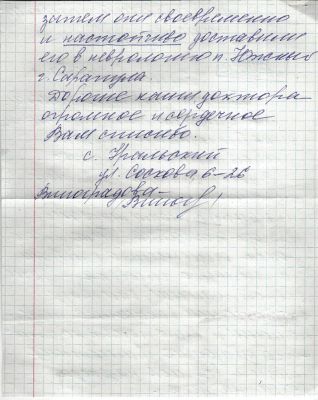 затем они своевременно
и настойчиво доставили
его в неврологию п. Южный
г. Сарапула.
Дорогие наши доктора
огромное и сердечное
Вам спасибо.
с. Уральский
ул. Соскова 6-26
Виноградова-